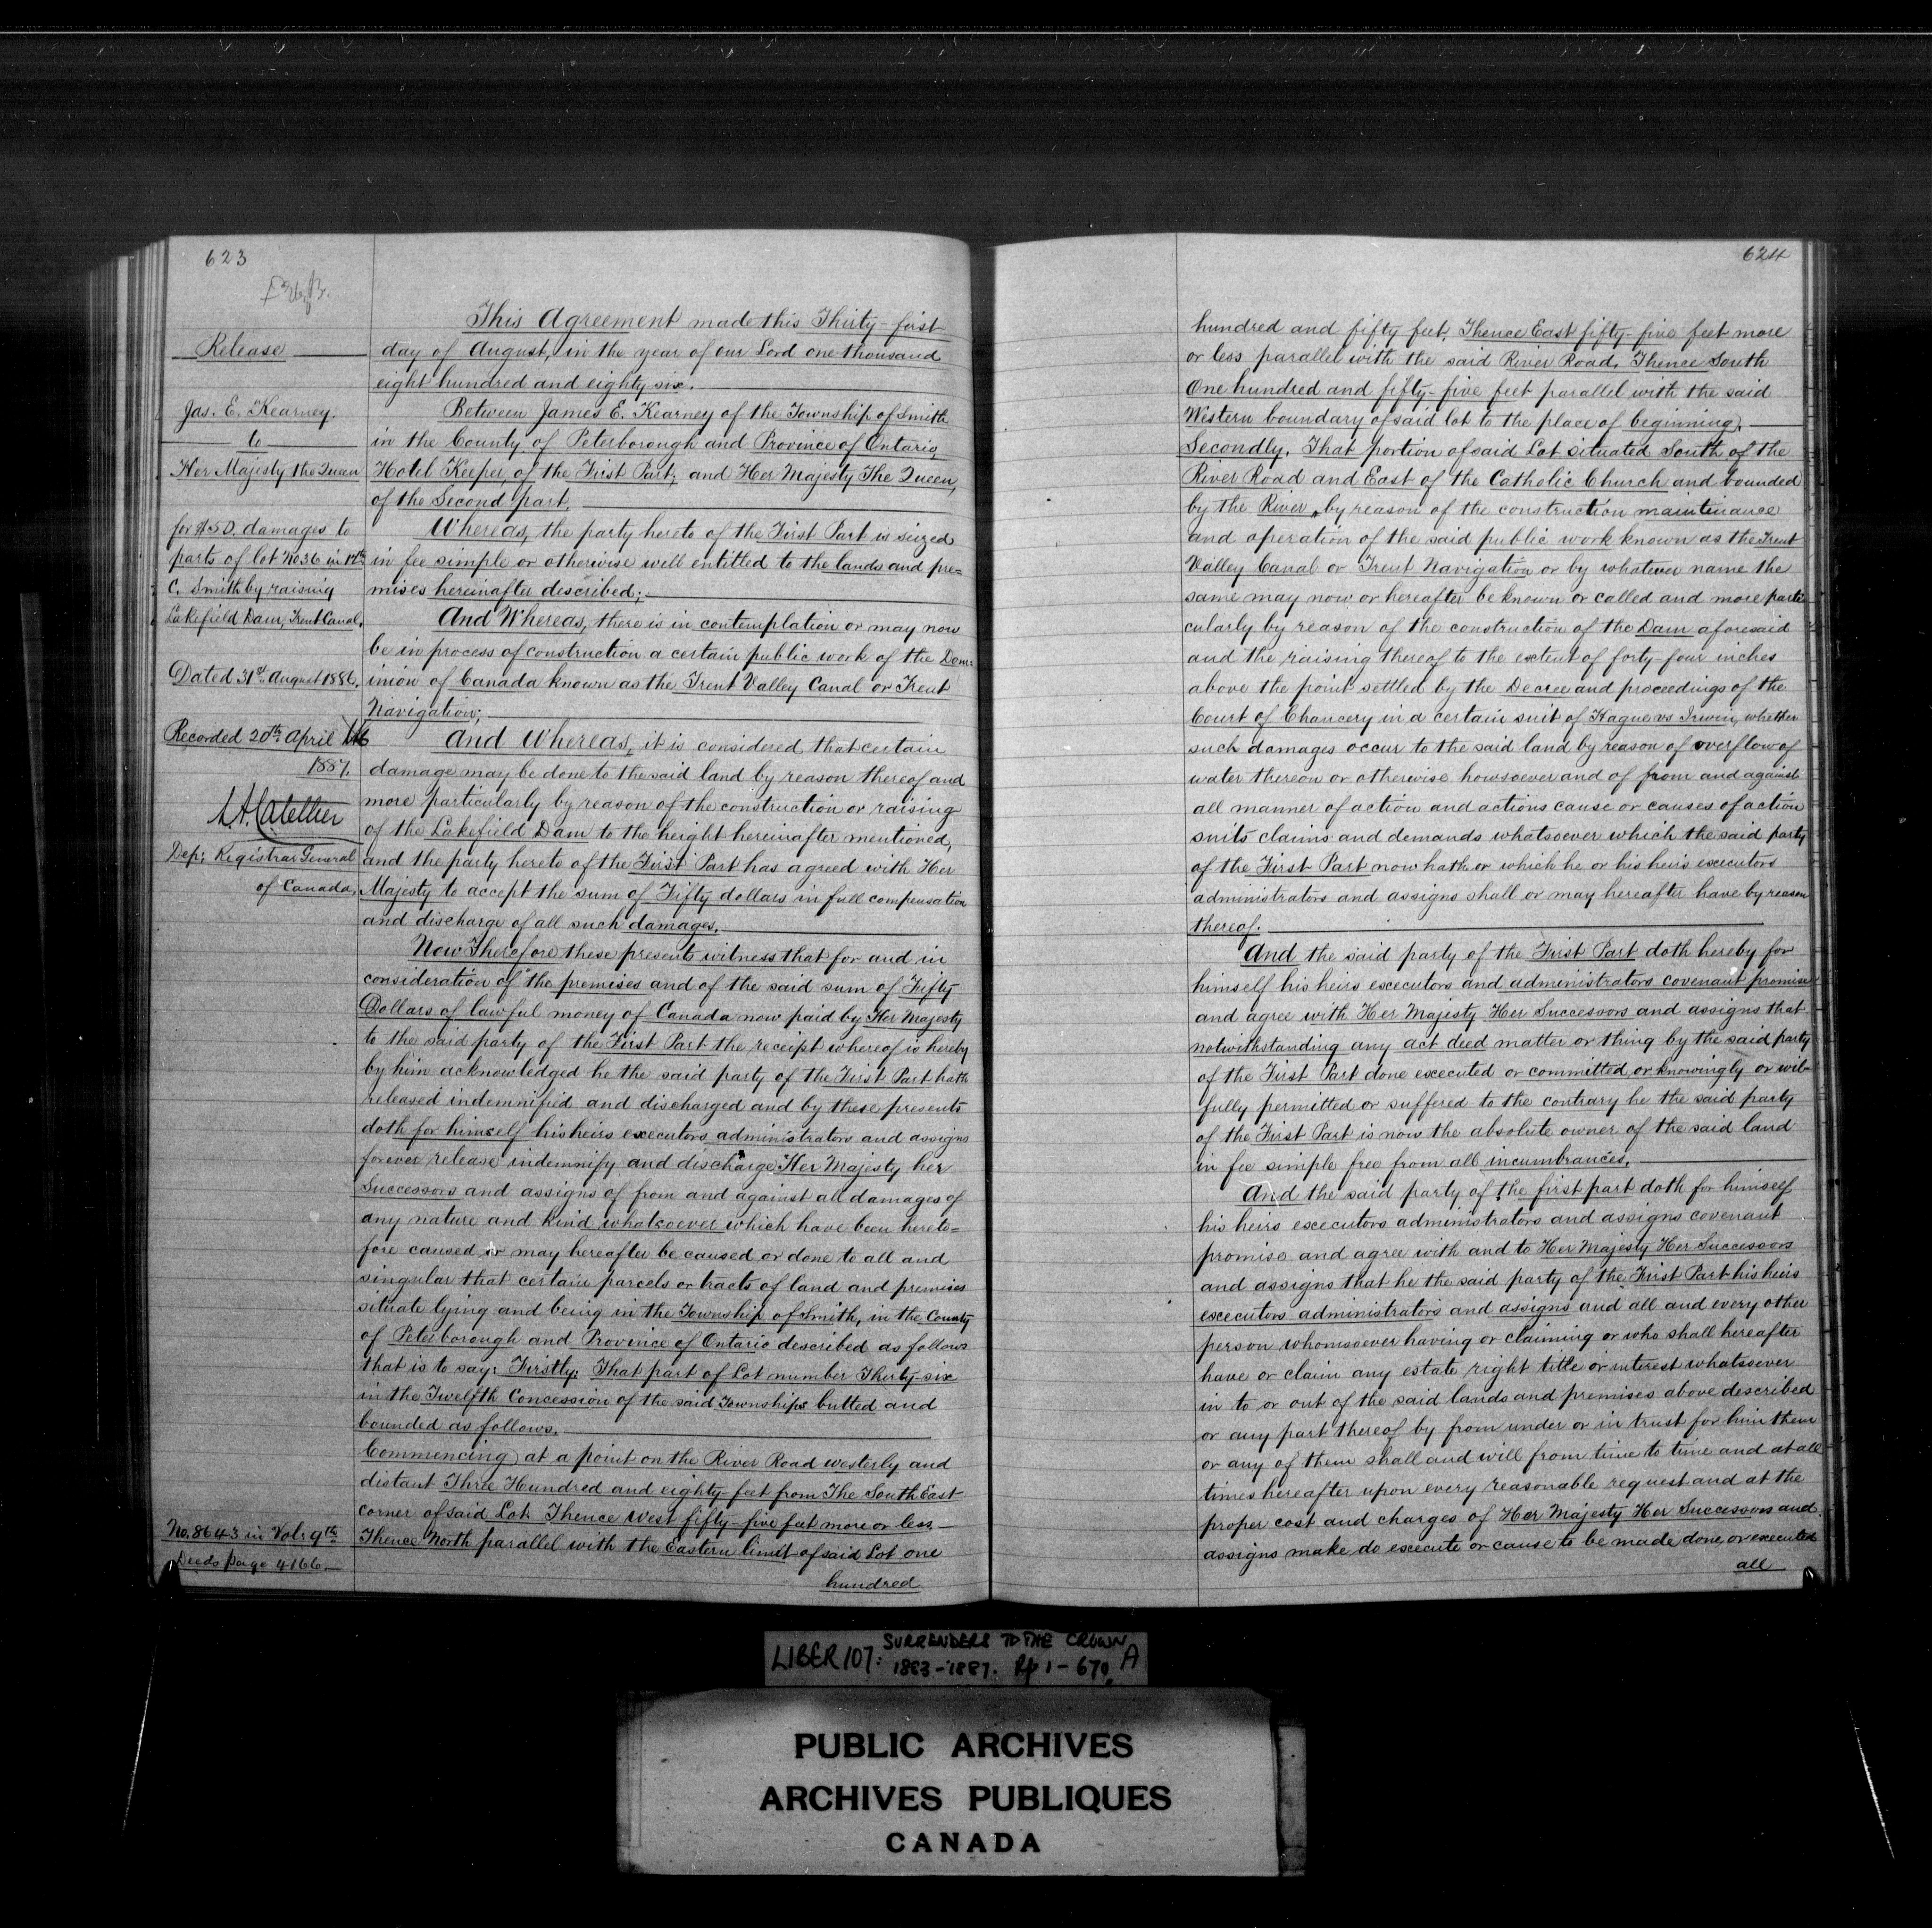 623
Release
Jas. E. Kearney.
to
Her Majesty the Queen
for $50. damages to
parts of lot No 36 in 12th
C. Smith by raising
Lakefield Dam, Trent Canal.
Dated 31st August 1886.
Recorded 20th April
1887.
Dep: Registrar General
of Canada.
No. 8643 in Vol: 9th
Deeds page 4166
This Agreement made this Thirty-first
day of August, in the year of our Lord one thousand
eight hundred and eighty six.
Between James E. Kearney of the Township of Smith
in the County of Peterborough and Province of Ontario,
Hotel Keeper, of the First Part; and Her Majesty The Queen,
of the Second part.
Whereas, the party hereto of the First Part is seized
in fee simple or otherwise well entitled to the lands and pre=
mises hereinafter described;
And Whereas, there is in contemplation or may now
be in process of construction a certain public work of the Dom=
inion of Canada known as the Trent Valley Canal or Trent
Navigation;
And Whereas, it is considered that certain
damage may be done to the said land by reason thereof and
more particularly by reason of the construction or raising
of the Lakefield Dam to the height hereinafter mentioned,
and the party hereto of the First Part has agreed with Her
Majesty to accept the sum of Fifty dollars in full compensation
and discharge of all such damages.
Now Therefore these presents witness that for and in
consideration of the premises and of the said sum of Fifty
Dollars of lawful money of Canada now paid by Her Majesty
to the said party of the First Part the receipt whereof is hereby
by him acknowledged he the said party of the First Part hath
released indemnified and discharged and by these presents
doth for himself his heirs executors administrators and assigns
forever release indemnify and discharge Her Majesty her
Successors and assigns of from and against all damages of
any nature and kind whatsoever which have been hereto=
fore caused or may hereafter be caused or done to all and
singular that certain parcels or tracts of land and premises
situate lying and being in the Township of Smith, in the County
of Peterborough and Province of Ontario described as follows
that is to say: Firstly: That part of Lot number Thirty-six
in the Twelfth Concession of the said Township butted and
bounded as follows.
Commencing at a point on the River Road westerly and
distant Three Hundred and eighty-feet from The South East
corner of said Lot. Thence West fifty-five feet more or less
Thence North parallel with the Eastern limit of said Lot one
hundred
624
hundred and fifty feet. Thence East fifty-five feet more
or less parallel with the said River Road. Thence South
One hundred and fifty-five feet parallel with the said
Western boundary of said lot to the place of beginning.
Secondly. That portion of said Lot situated South of the
River Road and East of the Catholic Church and bounded
by the River, by reason of the construction maintenance
and operation of the said public work known as the Trent
Valley Canal or Trent Navigation or by whatever name the
same may now or hereafter be known or called and more parti
cularly by reason of the construction of the Dam aforesaid
and the raising thereof to the extent of forty-four inches
above the point settled by the Decree and proceedings of the
Court of Chancery in a certain suit of Hague vs Irwin, whether
such damages occur to the said land by reason of overflow of
water thereon or otherwise howsoever and of from and against
all manner of action and actions cause or causes of action
suits claims and demands whatsoever which the said party
of the First Part now hath or which he or his heirs executors
administrators and assigns shall or may hereafter have by reason
thereof.
And the said party of the First Part doth hereby for
himself his heirs executors and administrators covenant promise
and agree with Her Majesty Her Successors and assigns that
notwithstanding any act deed matter or thing by the said party
of the First Part done executed or committed or knowingly or wil=
fully permitted or suffered to the contrary he the said party
of the First Part is now the absolute owner of the said land
in fee simple free from all incumbrances.
And the said party of the first part doth for himself
his heirs executors administrators and assigns covenant
promise and agree with and to Her Majesty Her Successors
and assigns that he the said party of the First Part his heirs
executors administrators and assigns and all and every other
person whomsoever having or claiming or who shall hereafter
have or claim any estate right title or interest whatsoever
in to or out of the said lands and premises above described
or any part thereof by from under or in trust for him them
or any of them shall and will from time to time and at all
times hereafter upon every reasonable request and at the
proper cost and charges of Her Majesty Her Successors and
assigns make do execute or cause to be made done or executed
all
LIBER 107: SURRENDERS TO THE CROWN A
1883-1887. Pp 1-670
PUBLIC ARCHIVES
ARCHIVES PUBLIQUES
CANADA